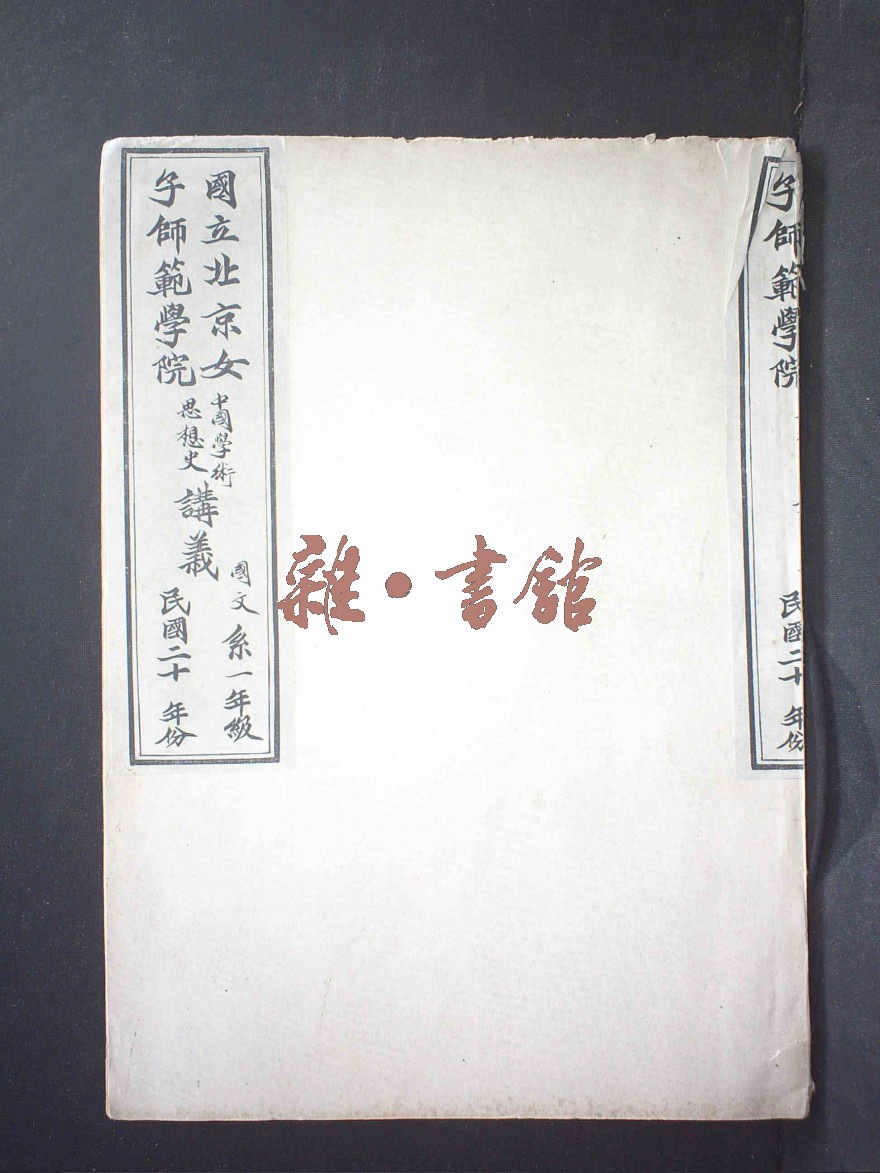 國立北京女
子師範學院
中國學術
思想史
講義
國文系一年級
民國二十年份
雜·書館
子師範學院
民國二十年份